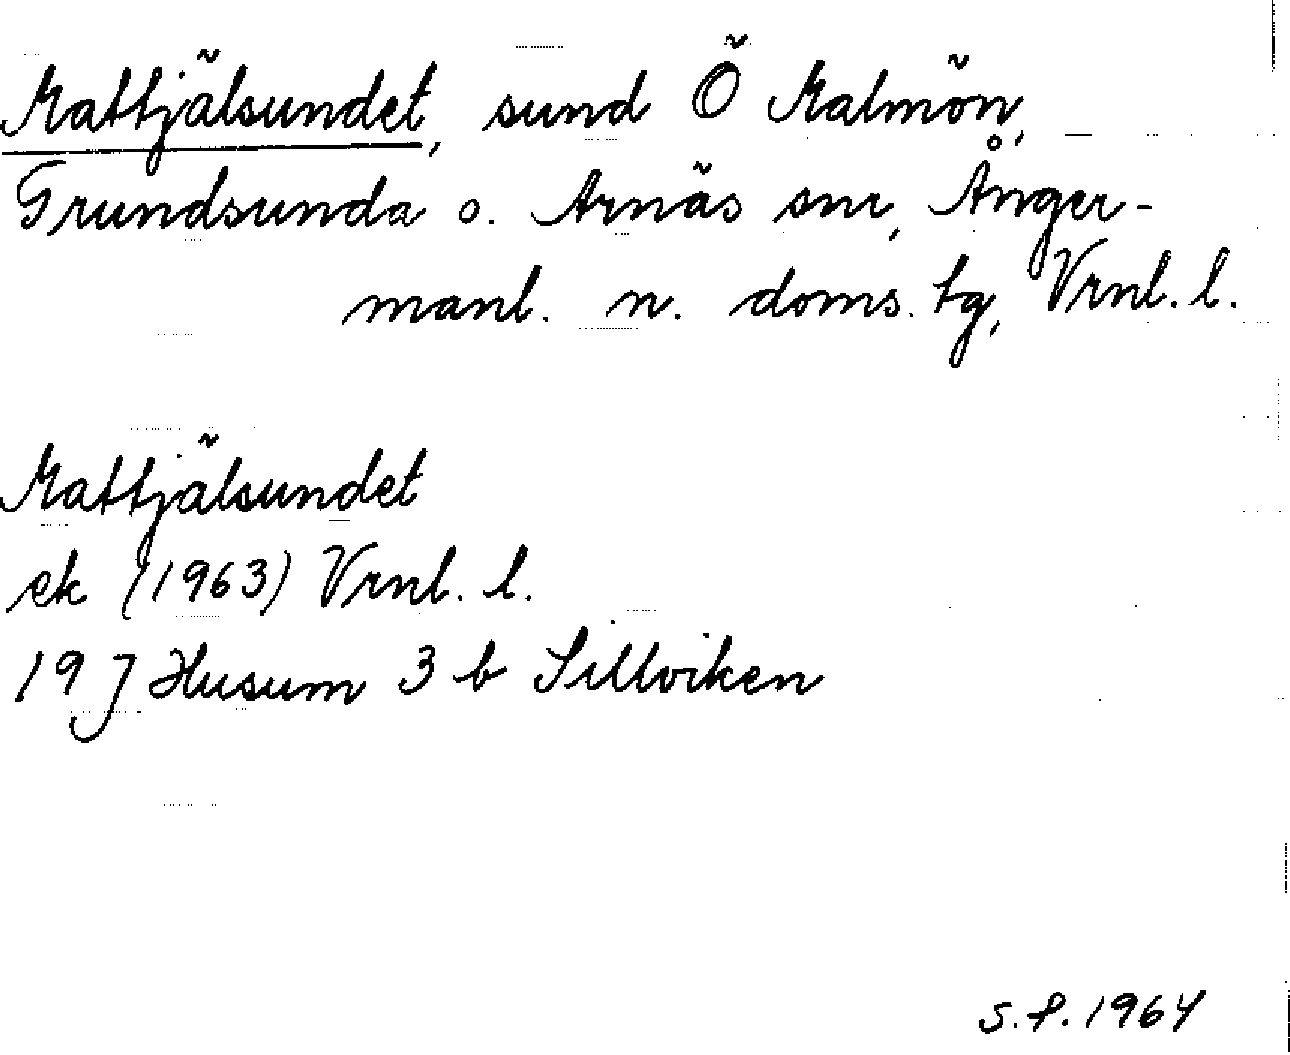 Mattjälsundet, sund Ö Malmön,
Grundsunda o. Arnäs snr, Ånger-
manl. n. doms. tg, Vrnl. l.
Mattjälsundet
ek (1963) Vrnl. l.
19 J Husum 3 b Sillviken
S.P. 1964